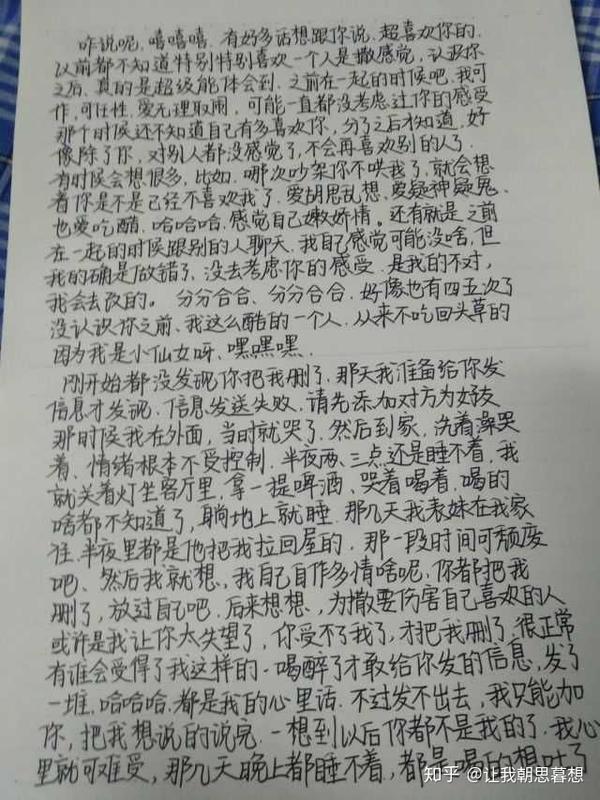 咋说呢，嘻嘻嘻，有好多话想跟你说，超喜欢你的.
以前都不知道特别特别喜欢一个人是撒感觉，认识你
之后，真的是超级能体会到. 之前在一起的时候吧，我可
作，可任性，爱无理取闹，可能一直都没考虑过你的感受
那个时候还不知道自己有多喜欢你，分了之后才知道，好
像除了你，对别人都没感觉了，不会再喜欢别的人了.
有时候会想很多，比如，哪次吵架你不哄我了，就会想
着你是不是已经不喜欢我了，爱胡思乱想、爱疑神疑鬼、
也爱吃醋，哈哈哈，感觉自己嫩娇情。还有就是之前
在一起的时候跟别的人聊天，我自己感觉可能没啥，但
我的确是做错了，没去考虑你的感受，是我的不对，
我会去改的。 分分合合、分分合合，好像也有四五次了
没认识你之前、我这么酷的一个人，从来不吃回头草的
因为我是小仙女呀、嘿嘿嘿、
刚开始都没发现你把我删了，那天我准备给你发
信息才发现，信息发送失败，请先添加对方为好友
那时候我在外面，当时就哭了，然后到家，洗着澡哭
着、情绪根本不受控制，半夜两、三点还是睡不着，我
就关着灯坐客厅里，拿一提啤酒、哭着喝着，喝的
啥都不知道了，躺地上就睡，那几天我表妹在我家
住，半夜里都是他把我拉回屋的，那一段时间可颓废
吧、然后我就想、我自己自作多情啥呢，你都把我
删了，放过自己吧，后来想想、为撒要伤害自己喜欢的人
或许是我让你太失望了，你受不了我了，才把我删了，很正常
有谁会受得了我这样的. 喝醉了才敢给你发的信息，发了
一堆，哈哈哈，都是我的心里话，不过发不出去，我只能加
你，把我想说的说完，一想到以后你都不是我的了，我心
里就可难受，那几天晚上都睡不着，都是喝的想吐了
知乎 @让我朝思暮想